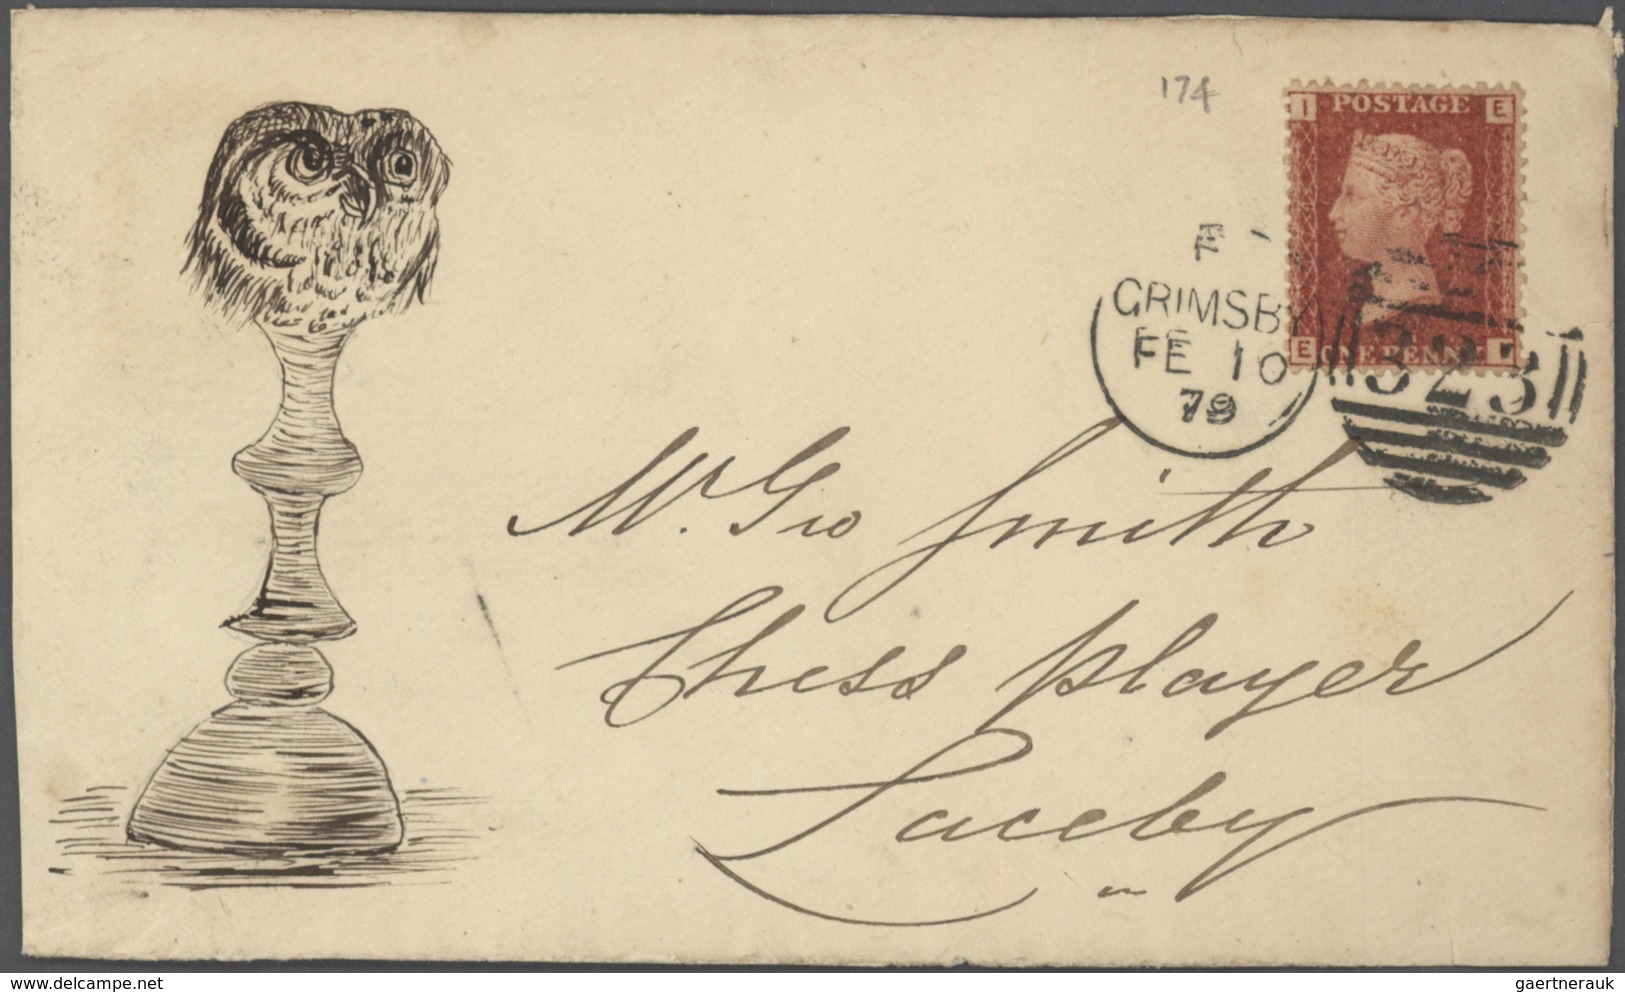 174
I POSTAGE E
E ONE PENNY
F
GRIMSBY
FE 10
79
323
Mr. Geo Smith
Chess player
Laceby
gaertnerauk